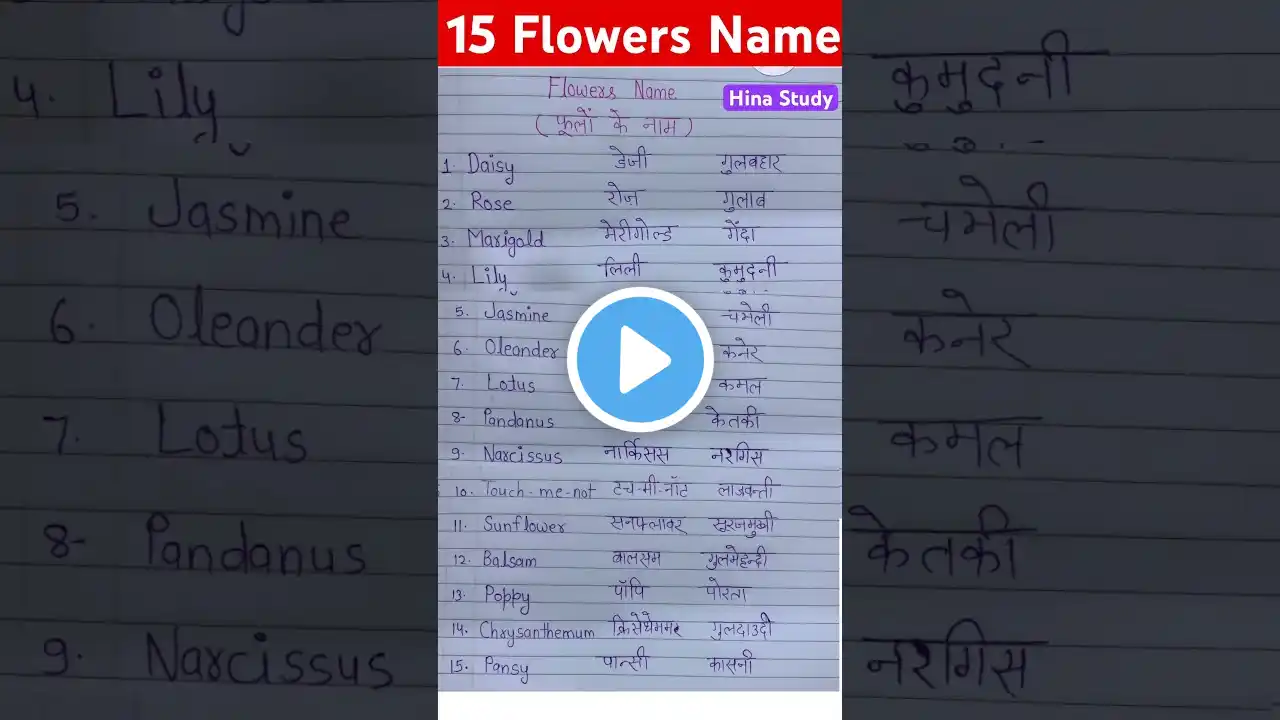 15 Flowers Name
Flowers Name
Hina Study
(फूलों के नाम)
1. Daisy डेजी गुलबहार
2. Rose रोज़ गुलाब
3. Marigold मेरीगोल्ड गेंदा
4. Lily लिली कुमुदनी
5. Jasmine चमेली
6. Oleander कनेर
7. Lotus कमल
8- Pandanus केतकी
9. Narcissus नार्किसस नरगिस
10. Touch-me-not टच-मी-नॉट लाजवन्ती
11. Sunflower सनफ्लावर सूरजमुखी
12. Balsam बालसम गुलमेहन्दी
13. Poppy पॉपि पोस्ता
14. Chrysanthemum क्रिसेंथेममर गुलदाउदी
15. Pansy पान्सी कासनी
4. Lily कुमुदनी
5. Jasmine चमेली
6. Oleander कनेर
7. Lotus कमल
8- Pandanus केतकी
9. Narcissus नरगिस